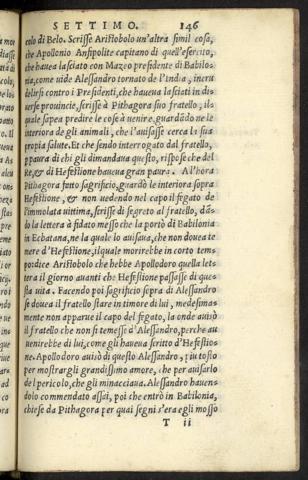 SETTIMO. 146
colo di Belo. Scrisse Aristobolo un'altra simil cosa,
che Apollonio Ansipolite capitano di quell'esercito,
che haueua lasciato con Mazeo presidente di Babilo-
nia, come uide Alessandro tornato de l'India, incru
delirsi contro i Presidenti, che haueua lasciati in di-
uerse prouincie, scrisse à Pithagora suo fratello, il-
quale sapea predire le cose à uenire, guardãdo ne le
interiora de gli animali, che l'auisasse cerca la sua
propia salute. Et che sendo interrogato dal fratello,
ppaura di chi gli dimandaua questo, rispose che del
Re, & di Hefestione haueua gran paura. Al'hora
Pithagora fatto sagrificio, guardò le interiora sopra
Hefestione, & non uedendo nel capo il fegato de
l'immolata uittima, scrisse di segreto al fratello, dã-
do la lettera à fidato messo che la portò di Babilonia
in Ecbatana, ne la quale lo auisaua, che non douea te
mere d'Hefestione, ilquale morirebbe in corto tem-
po: dice Aristobolo che hebbe Apollodoro quella let-
tera il giorno auanti che Hefestione passasse di que-
sta uita. Facendo poi sagrificio sopra di Alessandro
se doueua il fratello stare in timore di lui, medesima-
mente non apparue il capo del fegato, la onde auisò
il fratello che non si temesse d'Alessandro, perche au
uenirebbe di lui, come gli haueua scritto d'Hefestio-
ne. Apollodoro auisò di questo Alessandro, più tosto
per mostrargli grandissimo amore, che per auisarlo
del pericolo, che gli minacciaua. Alessandro hauen-
dolo commendato assai, poi che entrò in Babilonia,
chiese da Pithagora per quai segni s'era egli mosso
T ii